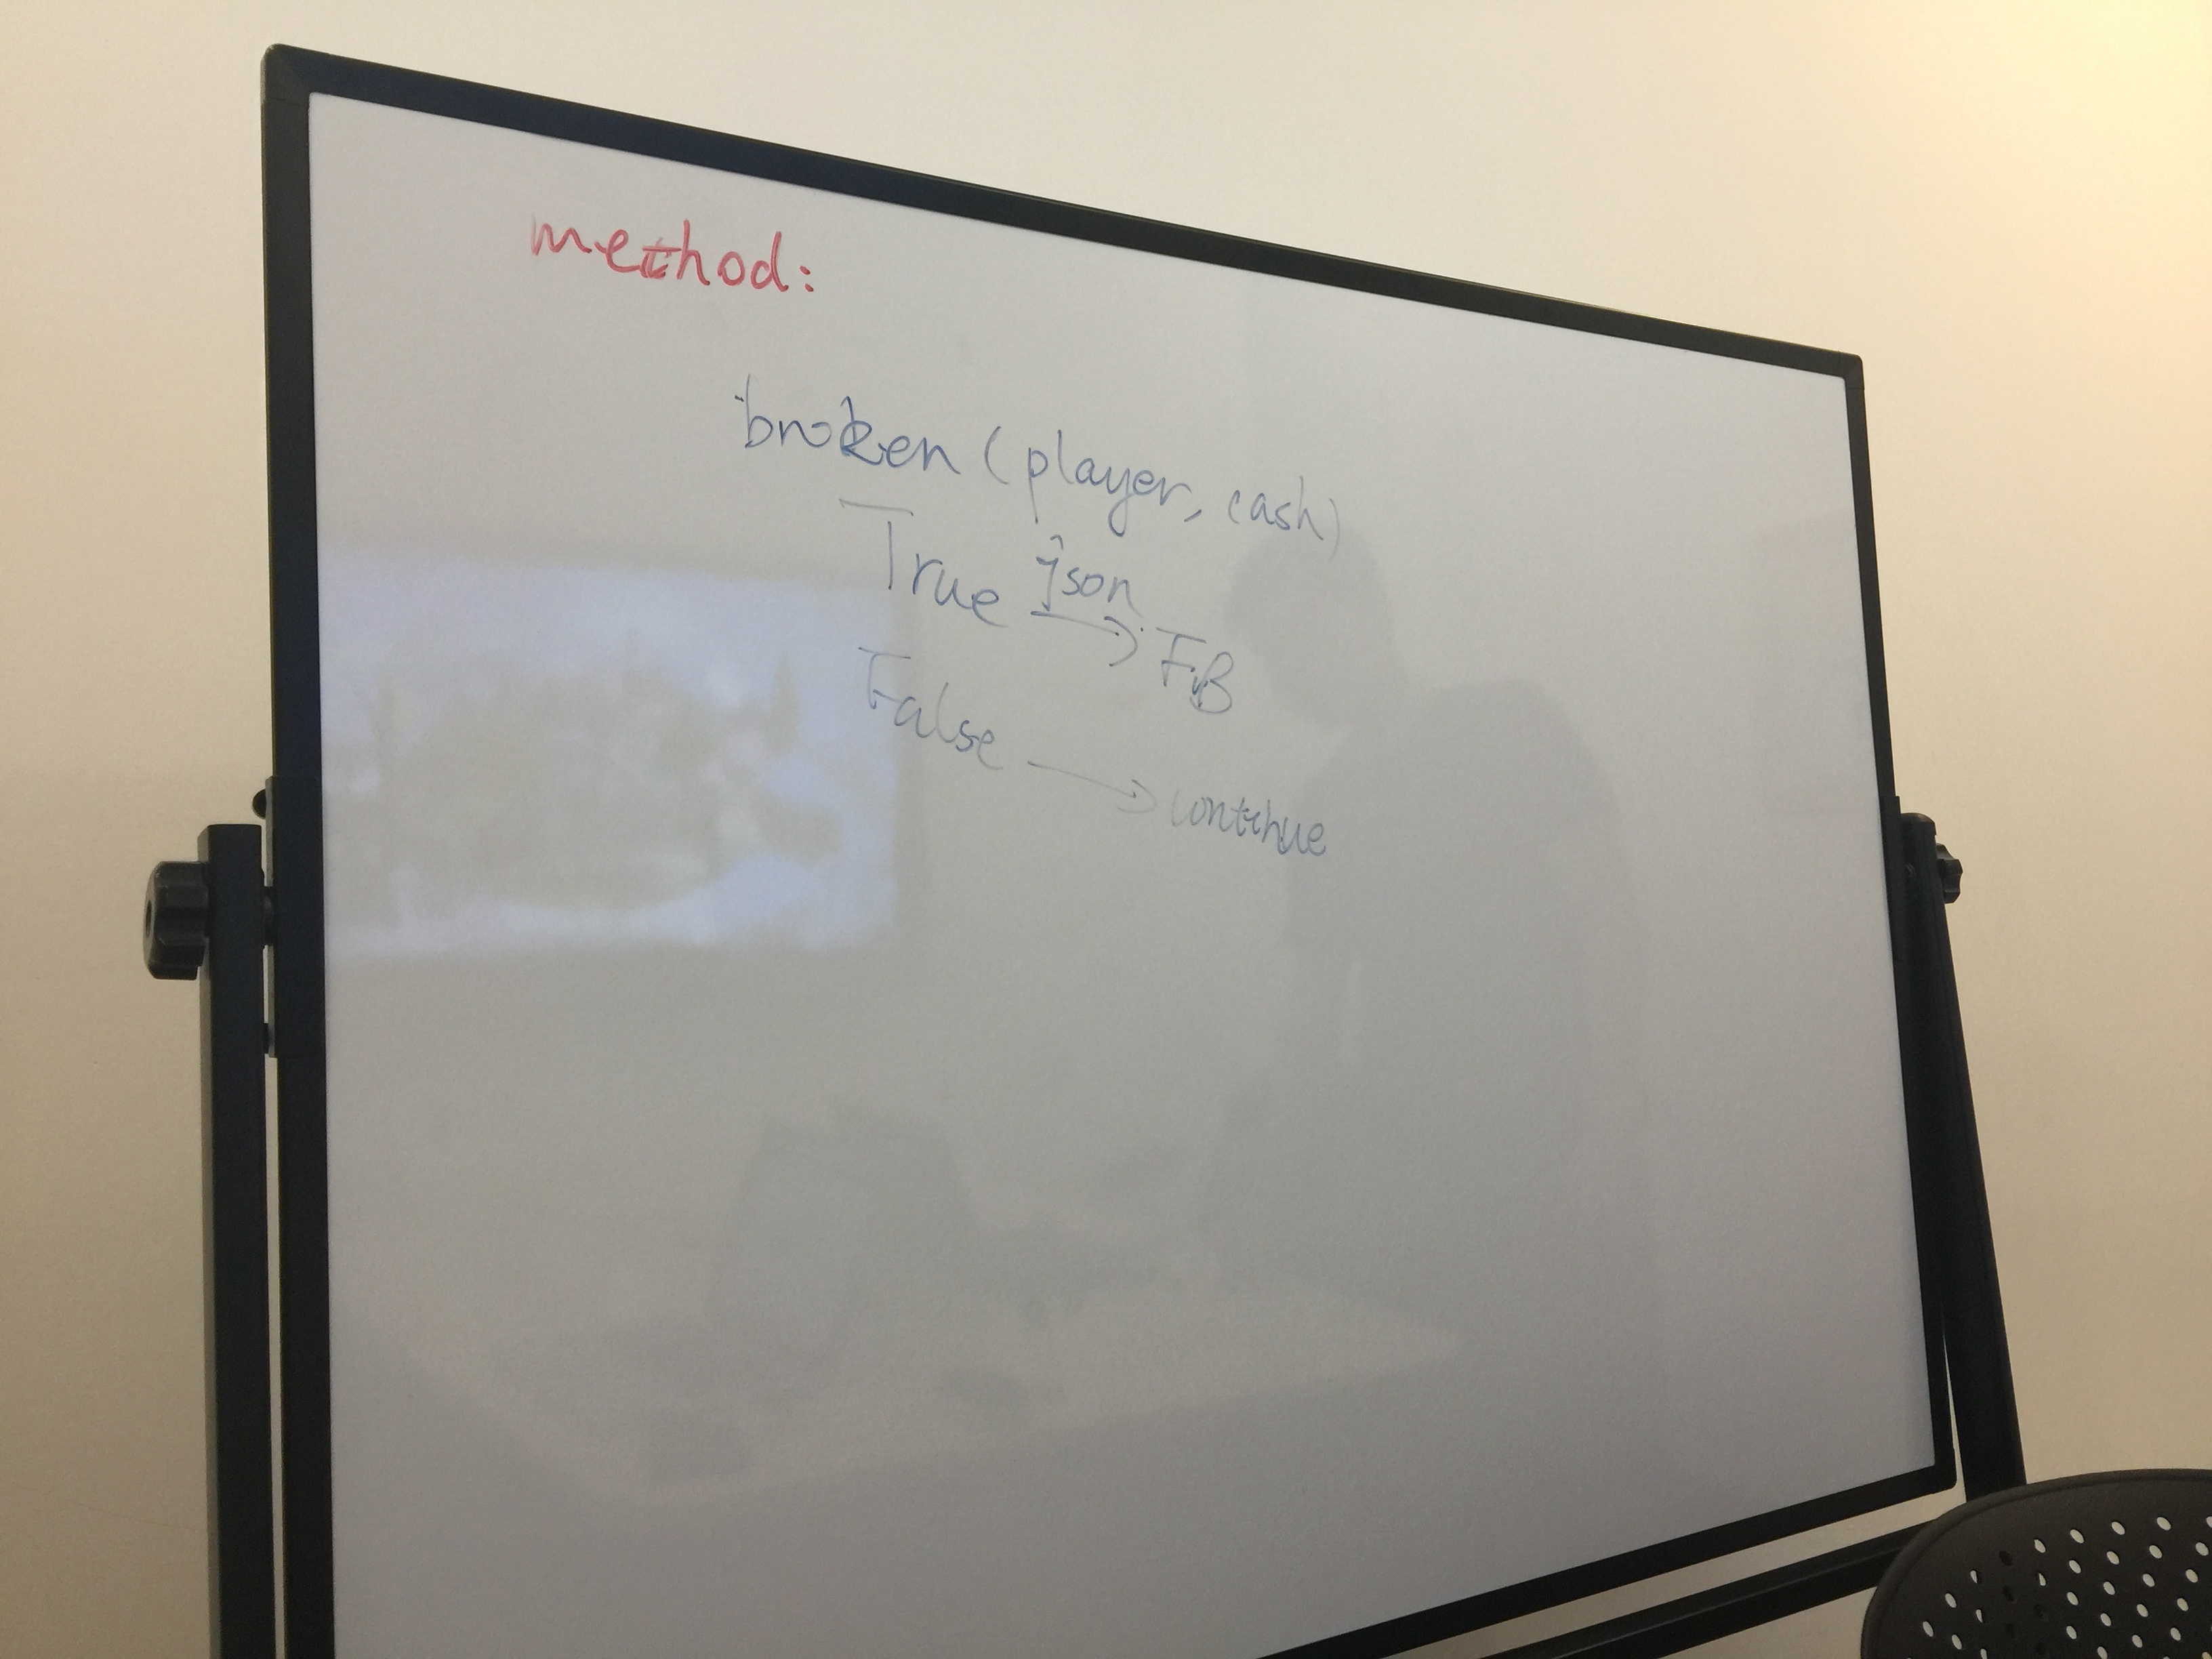 method:
broken (player, cash)
True json → FB
False → continue